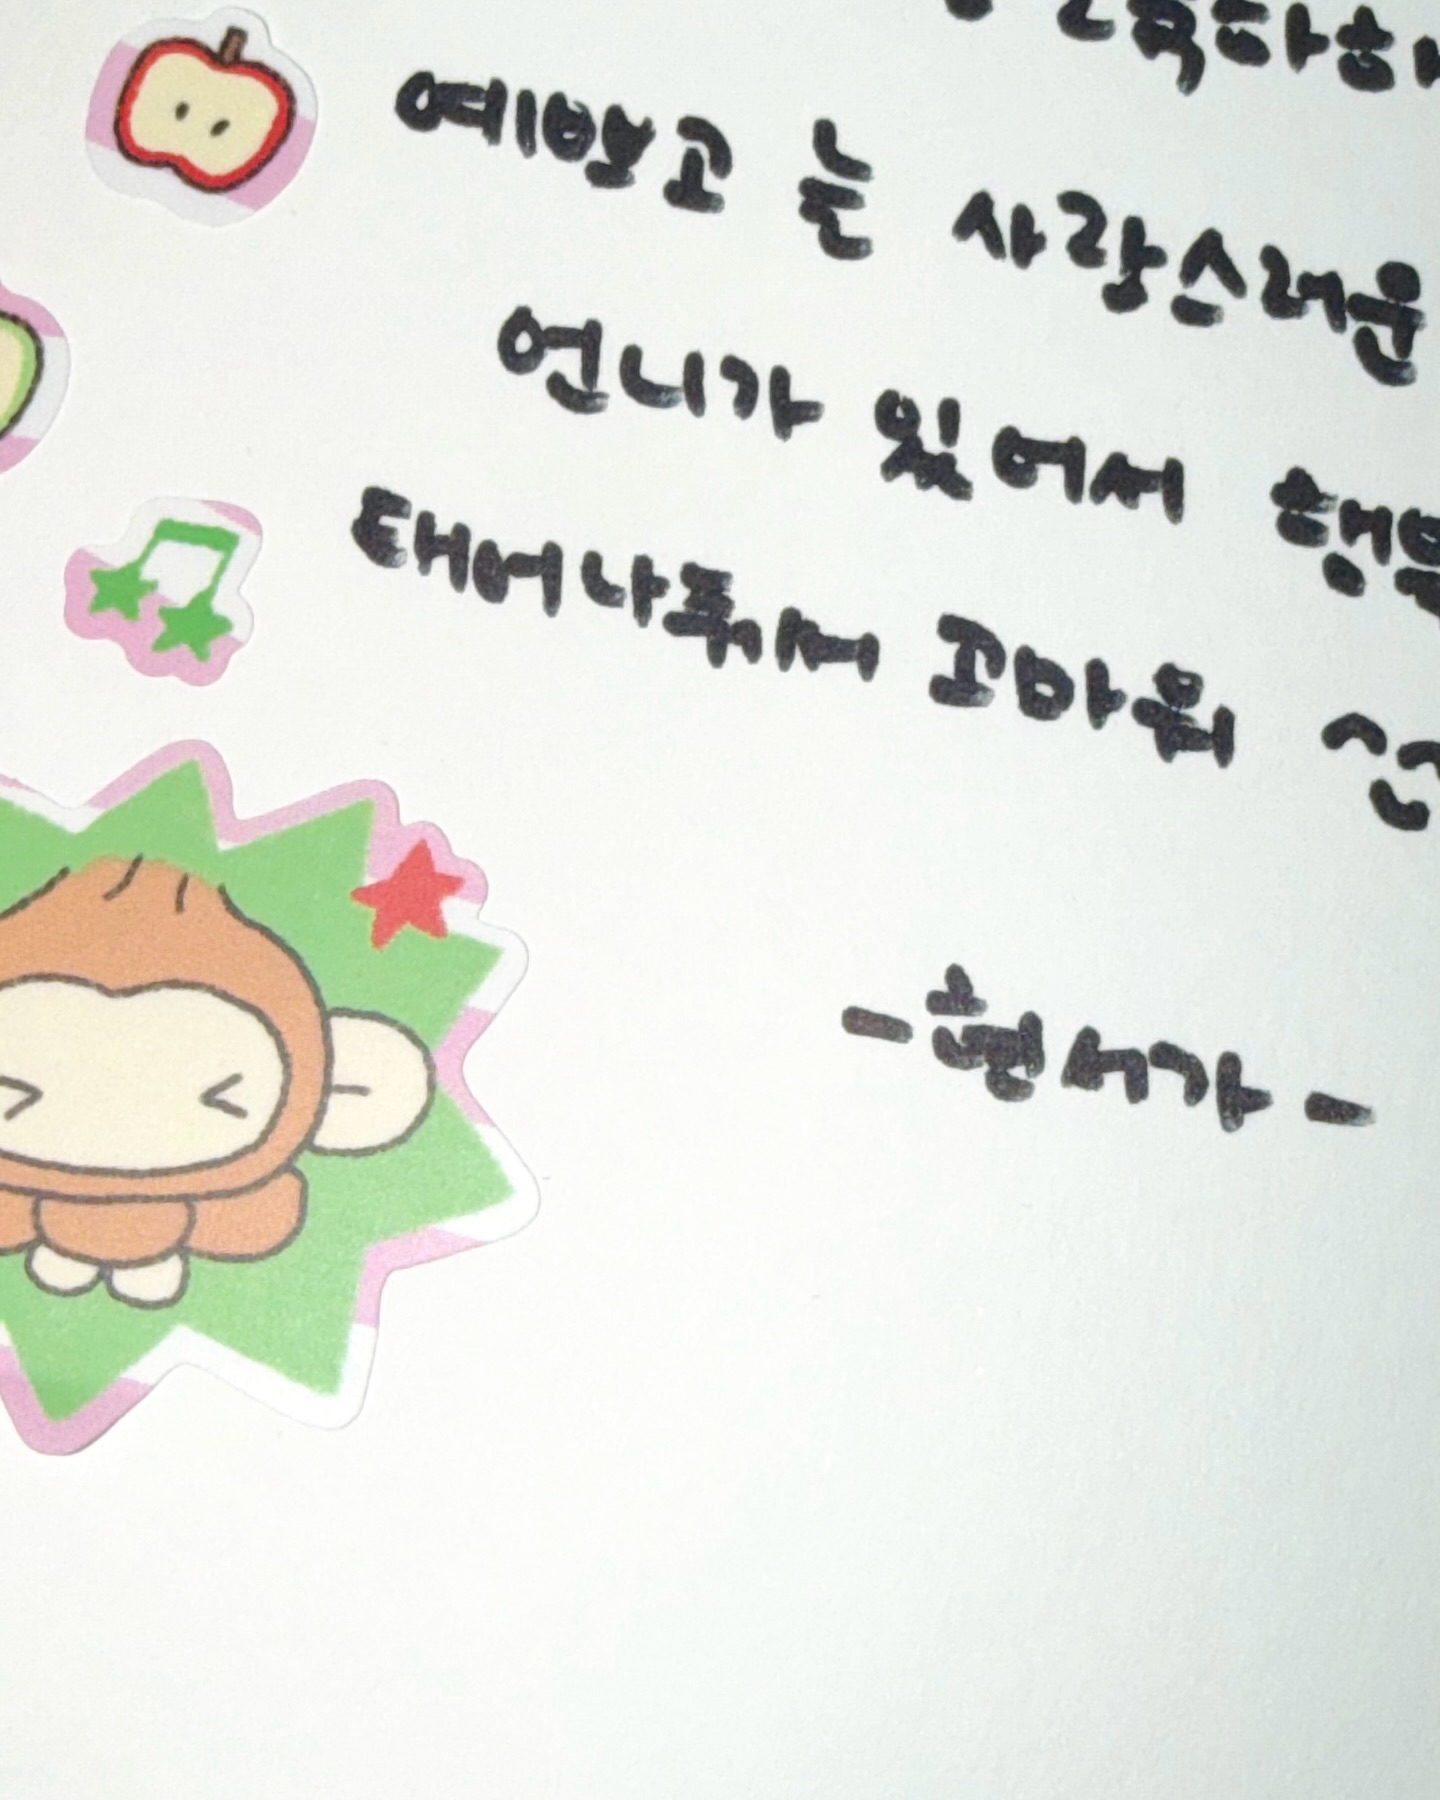 축하해
예쁘고 는 사랑스러운
언니가 있어서 행복
태어나줘서 고마워
-현서가-